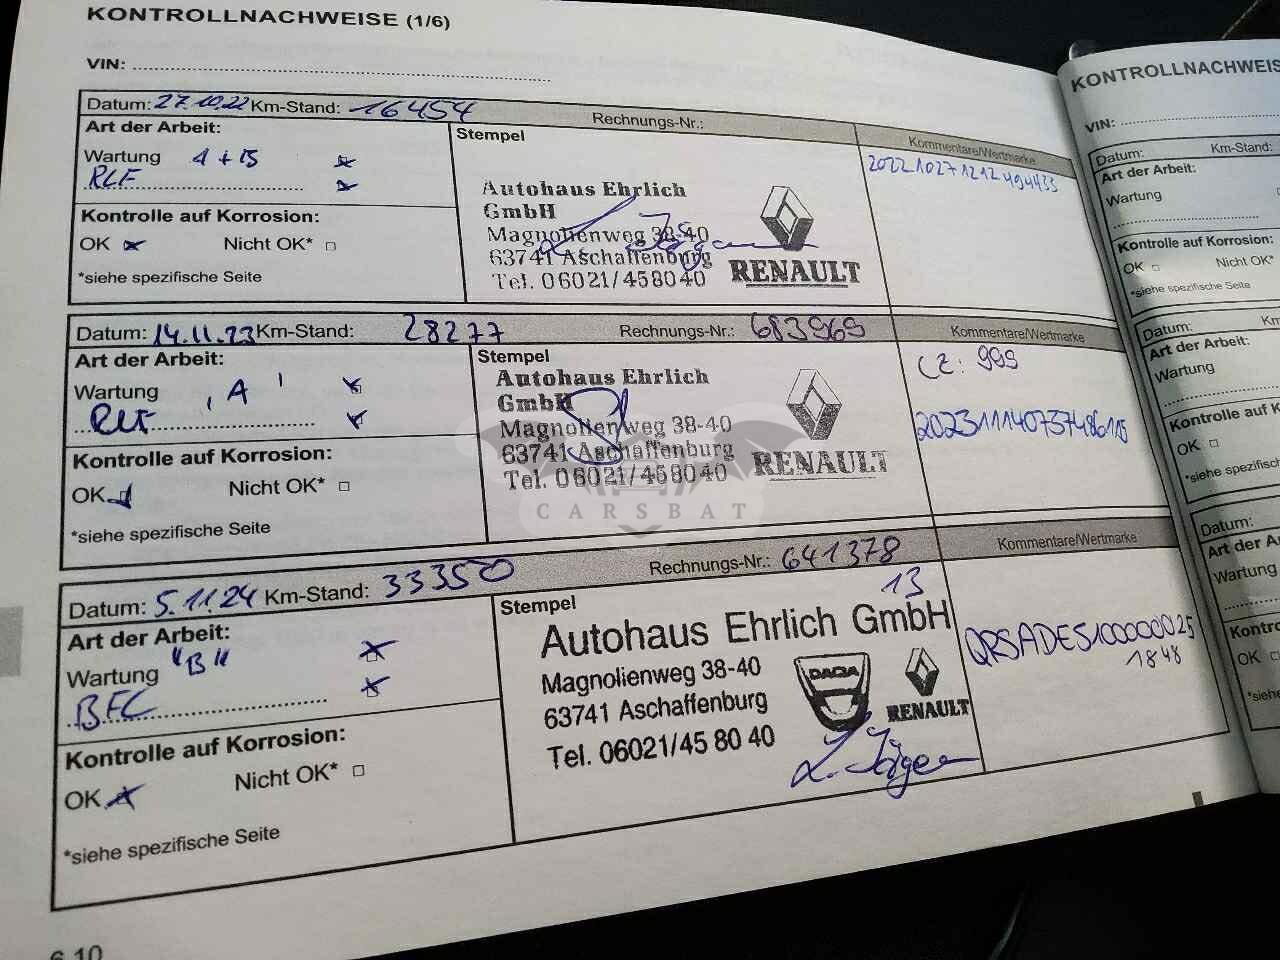 KONTROLLNACHWEISE (1/6)
VIN:
Datum: 27.10.22 Km-Stand: 16454 Rechnungs-Nr.:
Kommentare/Wertmarke
Art der Arbeit:
Stempel
Wartung A + B
RLF
20221027121249 4433
Autohaus Ehrlich
GmbH
Magnolienweg 38-40
63741 Aschaffenburg
Tel. 06021/458040
RENAULT
Kontrolle auf Korrosion:
OK Nicht OK*
*siehe spezifische Seite
Datum: 14.11.23 Km-Stand: 28277 Rechnungs-Nr.: 683969
Kommentare/Wertmarke
Art der Arbeit:
Stempel
Wartung "A"
RLF
CZ: 999
Autohaus Ehrlich
GmbH
Magnolienweg 38-40
63741 Aschaffenburg
Tel. 06021/458040
RENAULT
Kontrolle auf Korrosion:
OK Nicht OK*
*siehe spezifische Seite
CARSBAT
Datum: 5.11.24 Km-Stand: 33350 Rechnungs-Nr.: 641378
13
Kommentare/Wertmarke
Art der Arbeit:
Stempel
Wartung "B"
BFC
QRSADES1000000025
1848
Autohaus Ehrlich GmbH
Magnolienweg 38-40
63741 Aschaffenburg
Tel. 06021/45 80 40
DACIA
RENAULT
L. Jäger
Kontrolle auf Korrosion:
OK Nicht OK*
*siehe spezifische Seite
6.10
KONTROLLNACHWEIS
VIN:
Datum: Km-Stand:
Art der Arbeit:
Wartung
Kontrolle auf Korrosion:
OK Nicht OK*
*siehe spezifische Seite
Datum: Km
Art der Arbeit:
Wartung
Kontrolle auf Korrosion
OK Nicht
*siehe spezifisch
Datum:
Art der A
Wartung
Kontro
OK
*siehe